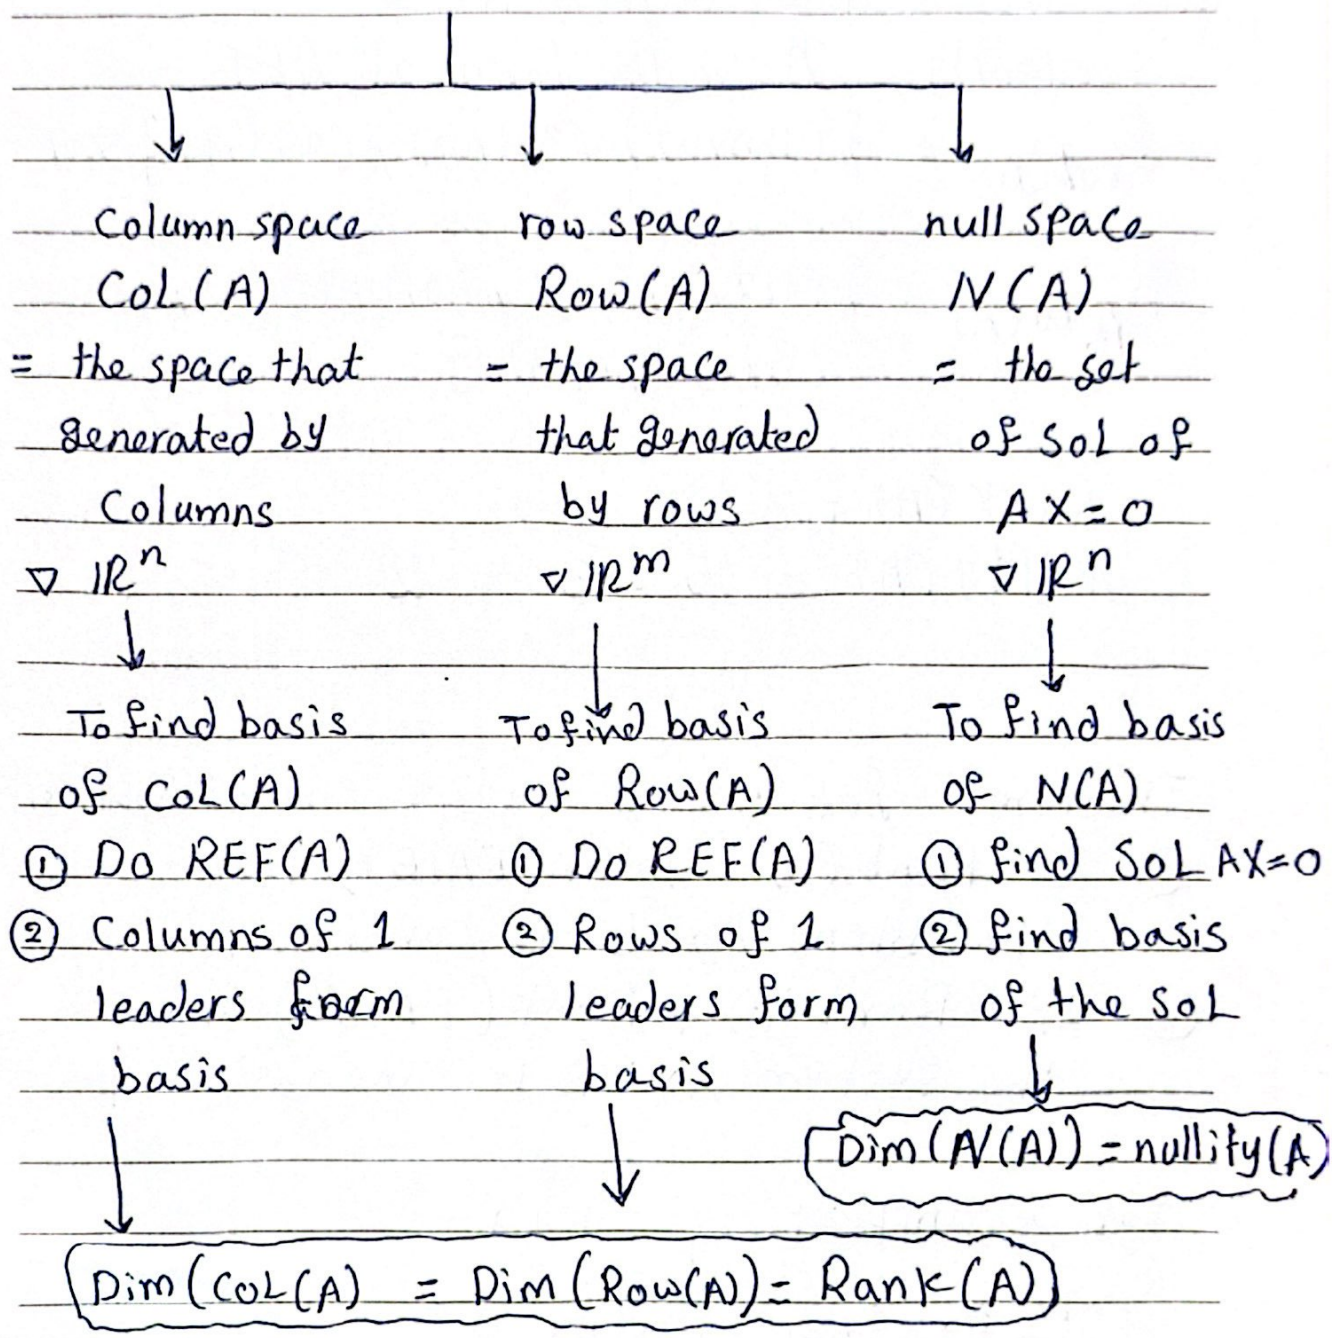 Column space
Col(A)
= the space that
generated by
Columns
▽ IRⁿ
To find basis
of Col(A)
① Do REF(A)
② Columns of 1
leaders form
basis
row space
Row(A)
= the space
that generated
by rows
▽ IRᵐ
To find basis
of Row(A)
① Do REF(A)
② Rows of 1
leaders form
basis
null space
N(A)
= the set
of SoL of
AX=0
▽ IRⁿ
To find basis
of N(A)
① find SoL AX=0
② find basis
of the SoL
Dim(N(A)) = nullity(A)
Dim(CoL(A) = Dim(Row(A)) = Rank(A)